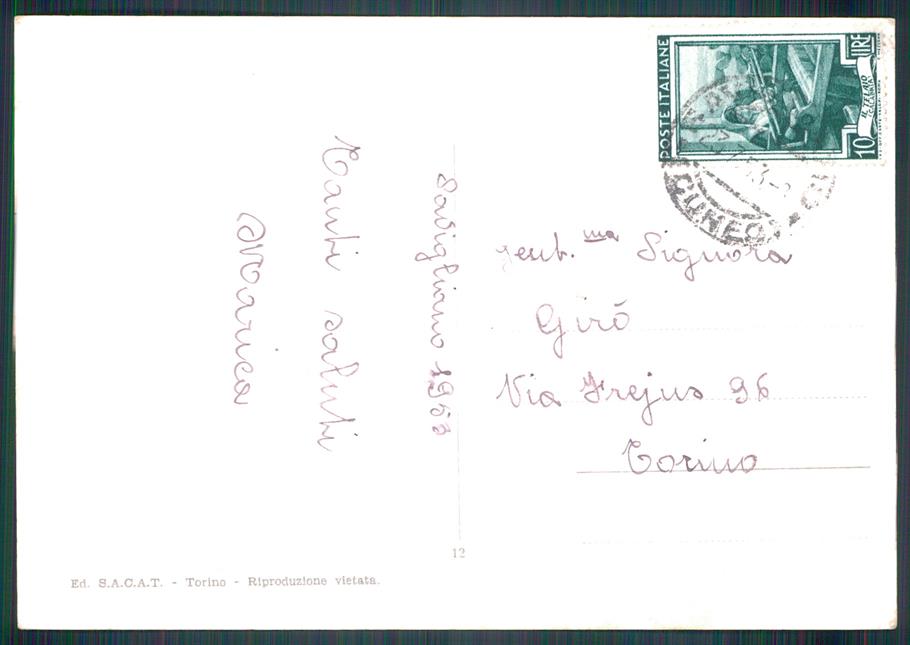 Savigliano 1953
Tanti saluti
gent.ma Signora
Girò
Via Frejus 96
Torino
POSTE ITALIANE
LIRE
10
IL TELAIO
CUNEO
12
Ed. S.A.C.A.T. - Torino - Riproduzione vietata.